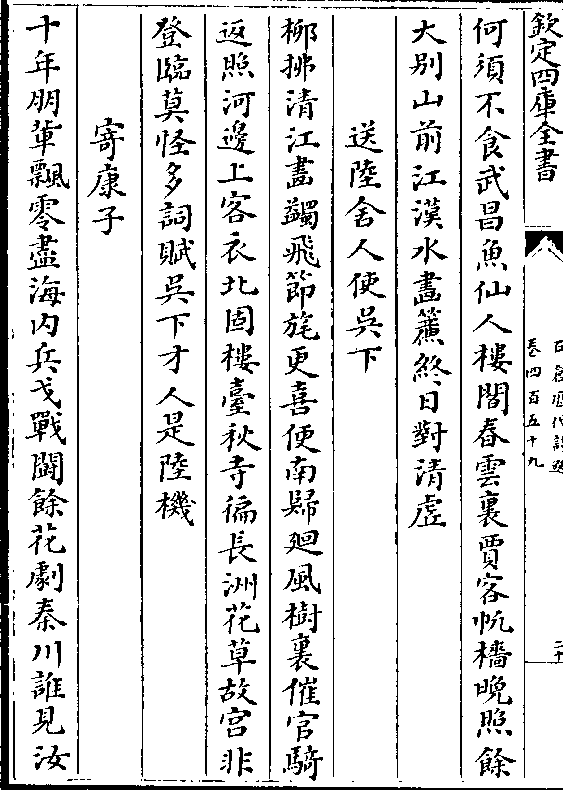 欽定四庫全書
卷四百五十九
何須不食武昌魚仙人樓閣春雲裏賈客帆檣晚照餘
大别山前江漢水畫簾終日對清虛
送陸舍人使吳下
柳拂清江畫鷁飛節旄更喜便南歸廻風樹裏催官騎
返照河邊上客衣北固樓臺秋寺徧長洲花草故宫非
登臨莫怪多詞賦吳下才人是陸機
寄康子
十年朋輩飄零盡海内兵戈戰鬭餘花劇秦川誰見汝